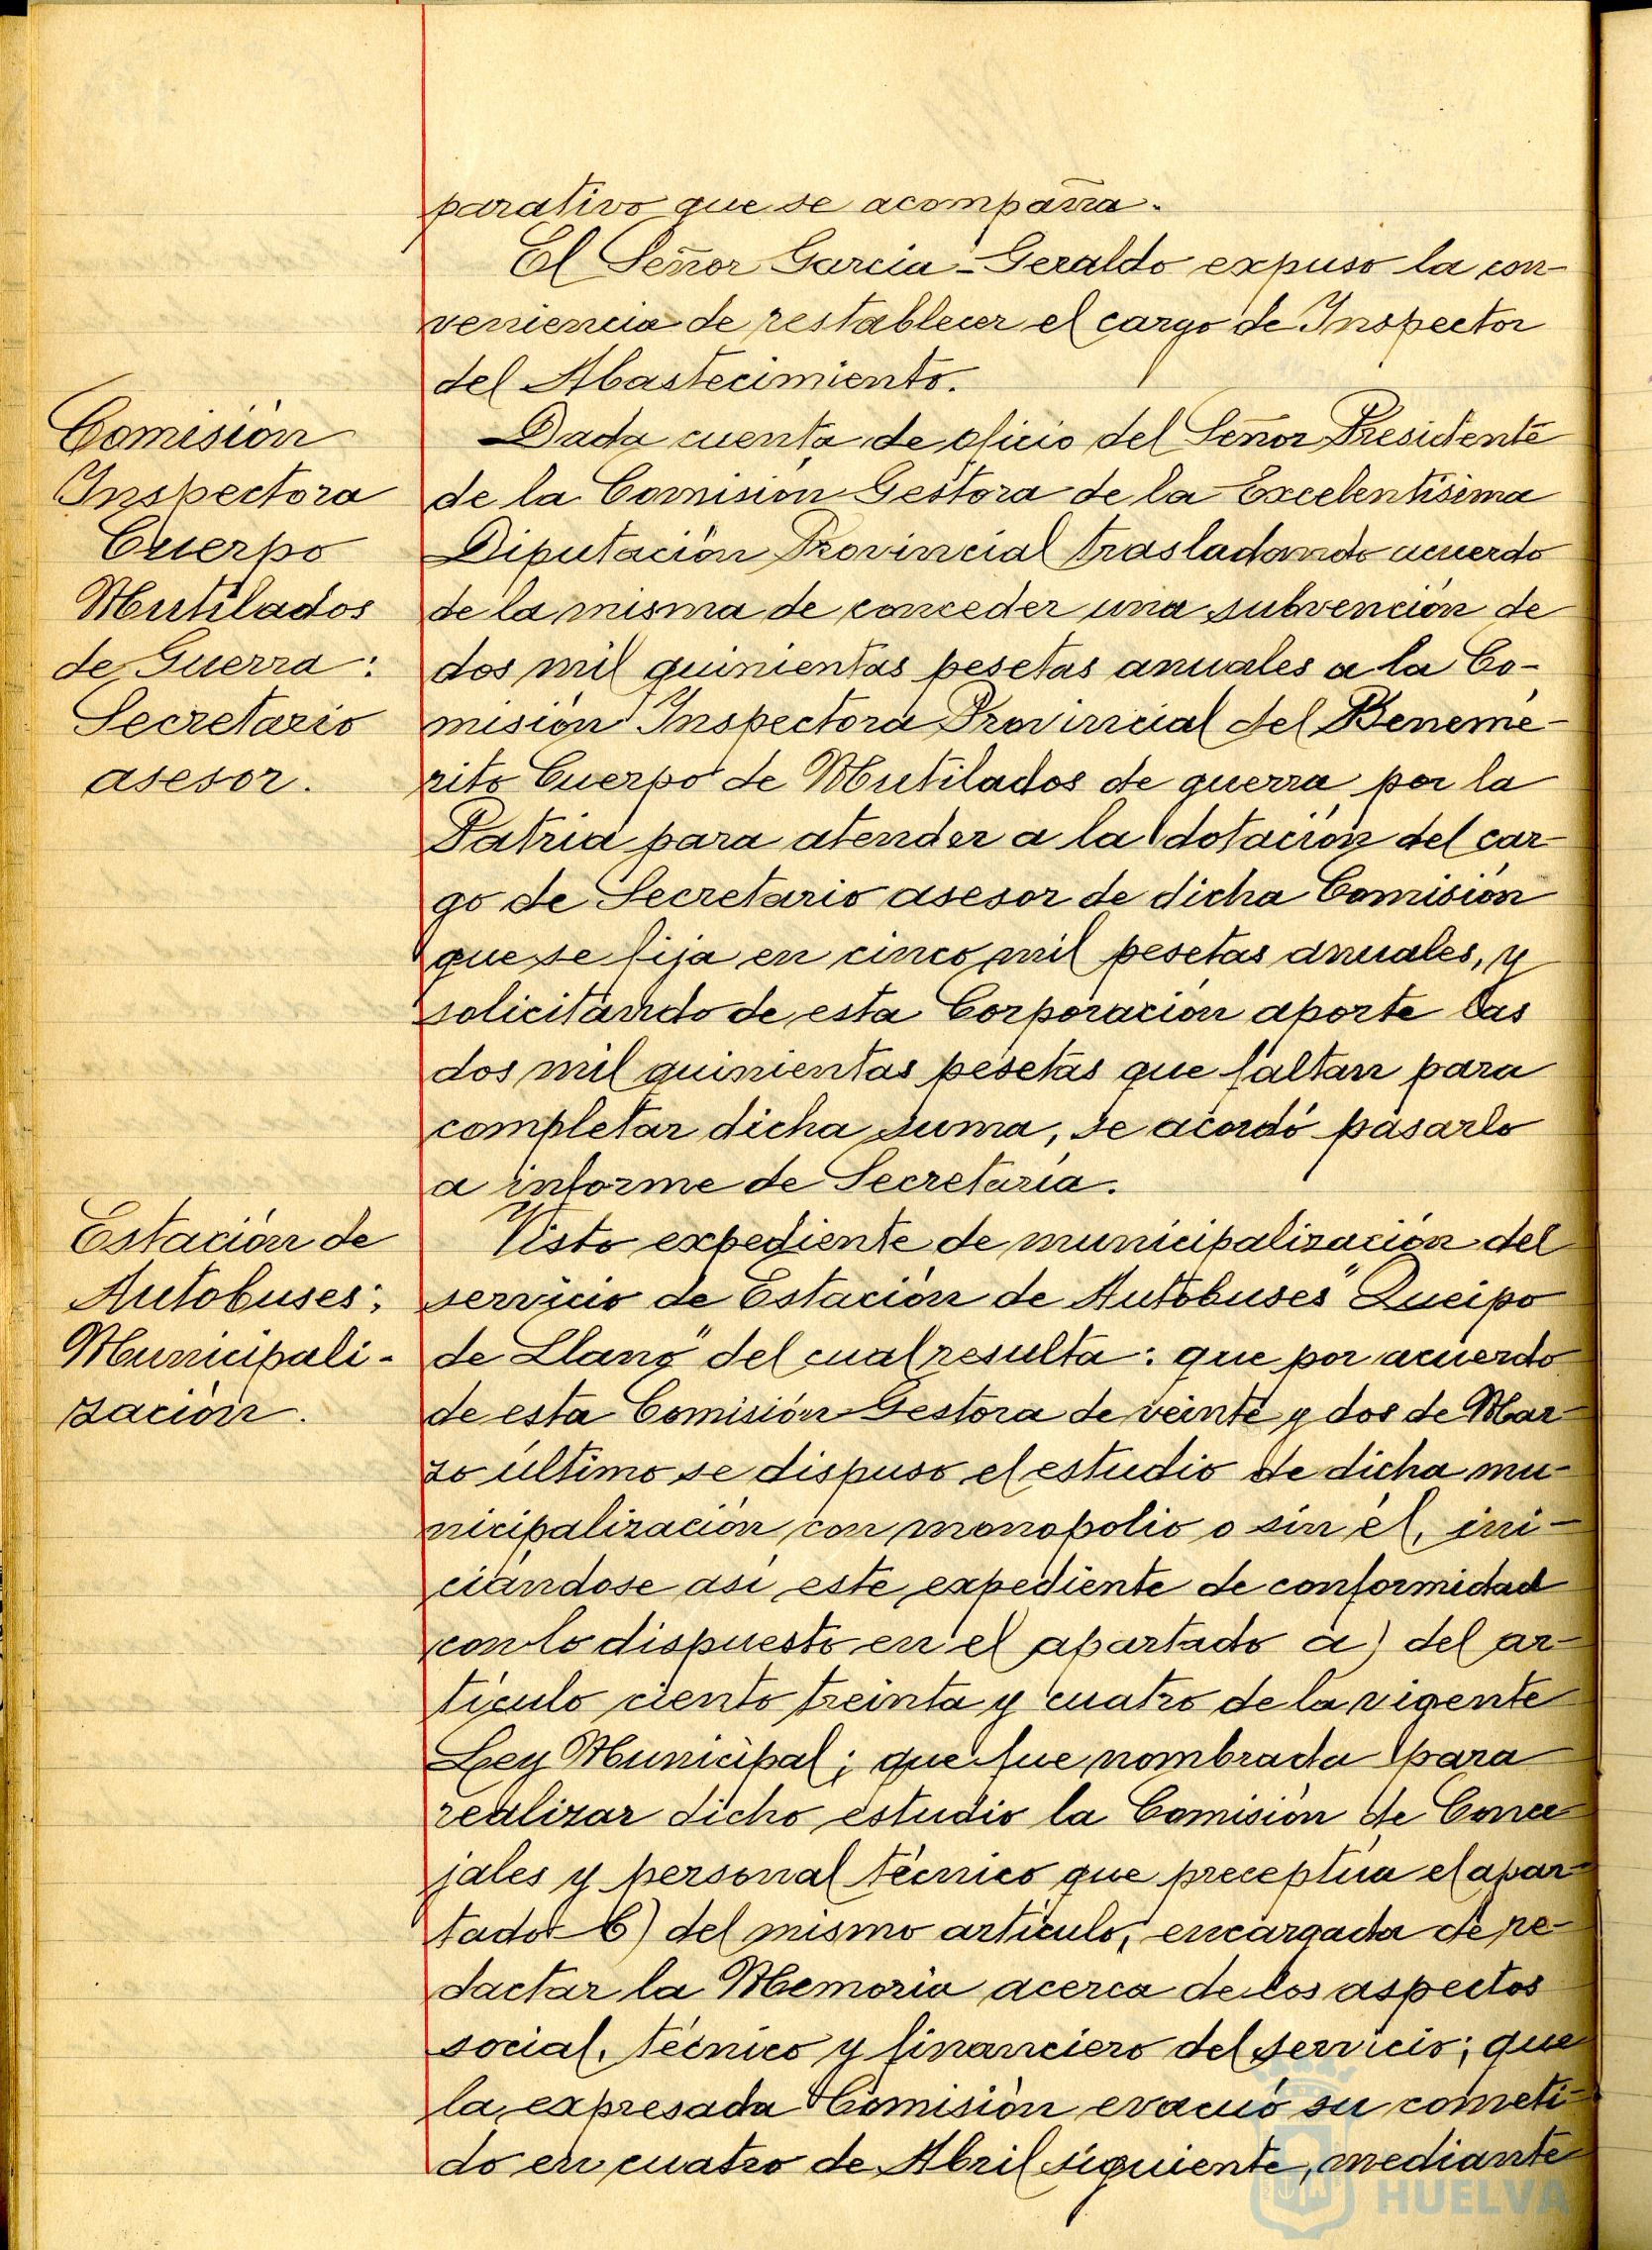 parativo que se acompaña.
El Señor Garcia-Geraldo expuso la con-
veniencia de restablecer el cargo de Inspector
del Abastecimiento.
Comisión
Inspectora
Cuerpo
Mutilados
de Guerra:
Secretario
asesor.
Dada cuenta de oficio del Señor Presidente
de la Comisión Gestora de la Excelentísima
Diputación Provincial trasladando acuerdo
de la misma de conceder una subvención de
dos mil quinientas pesetas anuales a la Co-
misión Inspectora Provincial del Benemé-
rito Cuerpo de Mutilados de guerra por la
Patria para atender a la dotación del car-
go de Secretario asesor de dicha Comisión
que se fija en cinco mil pesetas anuales, y
solicitando de esta Corporación aporte las
dos mil quinientas pesetas que faltan para
completar dicha suma, se acordó pasarlo
a informe de Secretaría.
Estación de
Autobuses;
Municipali-
zación.
Visto expediente de municipalización del
servicio de Estación de Autobuses "Queipo
de Llano" del cual resulta: que por acuerdo
de esta Comisión Gestora de veinte y dos de Mar-
zo último se dispuso el estudio de dicha mu-
nicipalización con monopolio o sin él, ini-
ciándose así este expediente de conformidad
con lo dispuesto en el apartado a) del ar-
tículo ciento treinta y cuatro de la vigente
Ley Municipal; que fue nombrada para
realizar dicho estudio la Comisión de Conce
jales y personal técnico que preceptúa el apar-
tado b) del mismo artículo, encargada de re-
dactar la Memoria acerca de los aspectos
social, técnico y financiero del servicio; que
la expresada Comisión evacuó su cometi-
do en cuatro de Abril siguiente, mediante
HUELVA